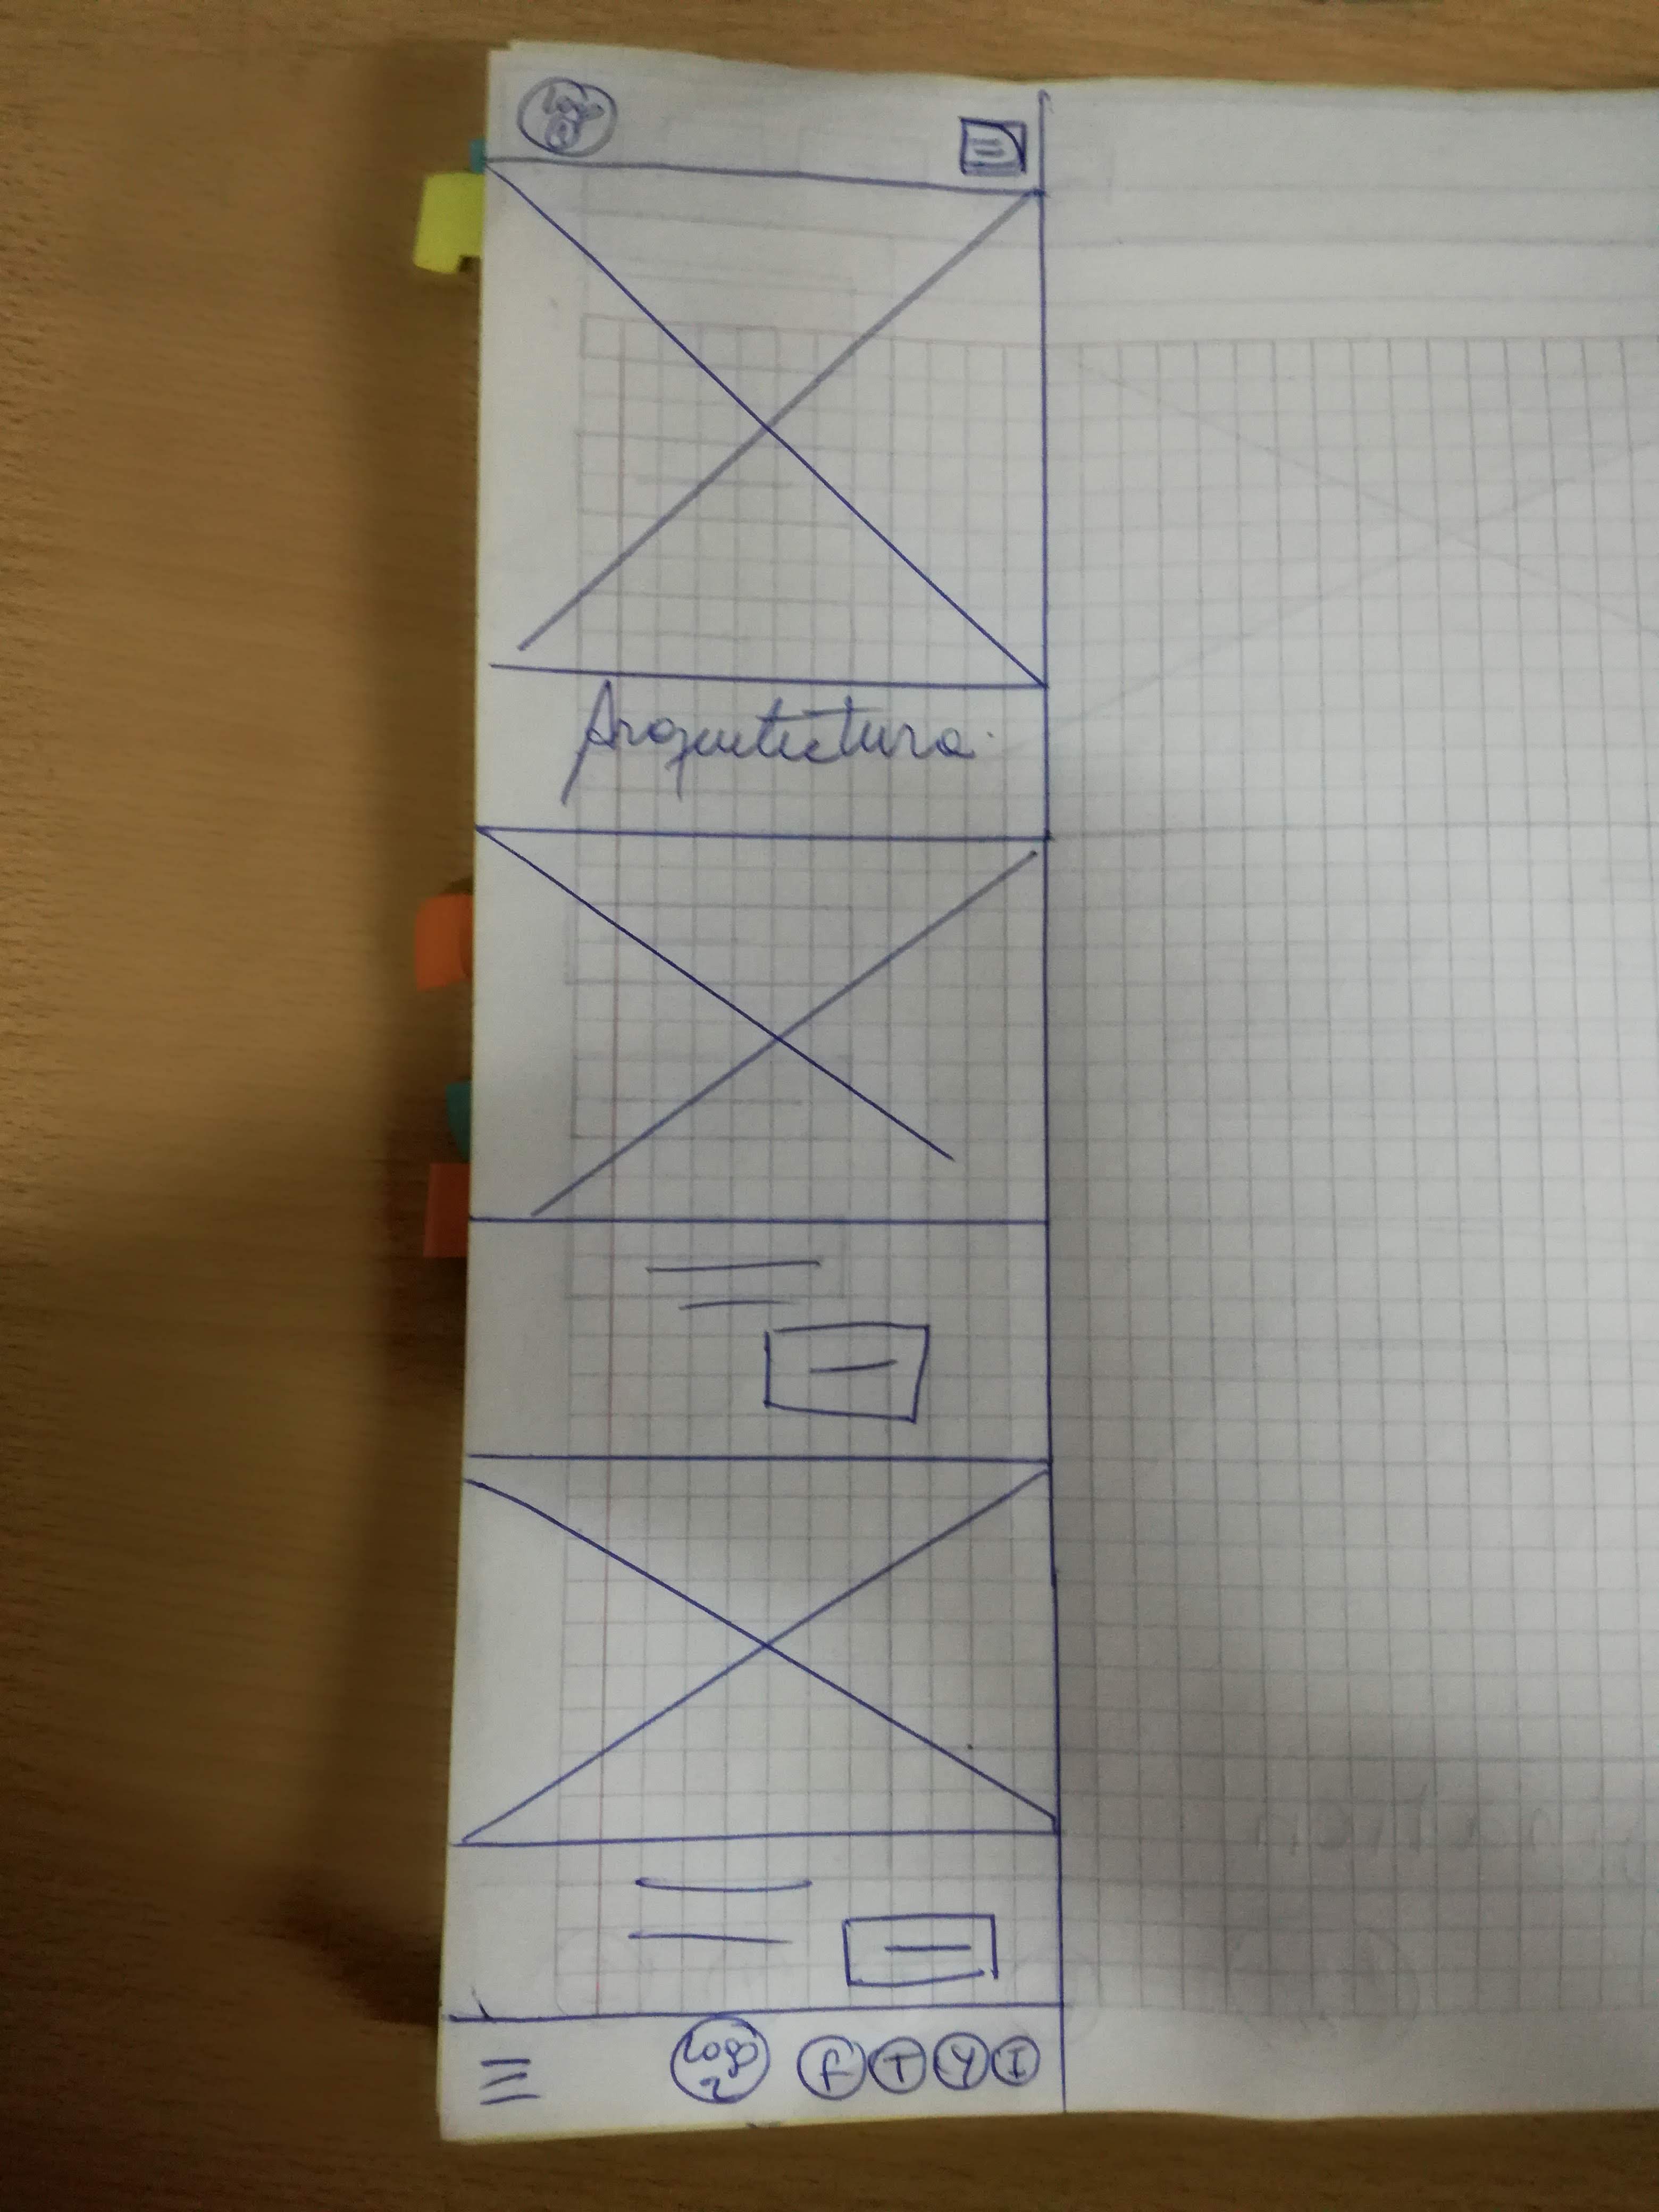 Logo
Arquitectura
Logo
f T Y I